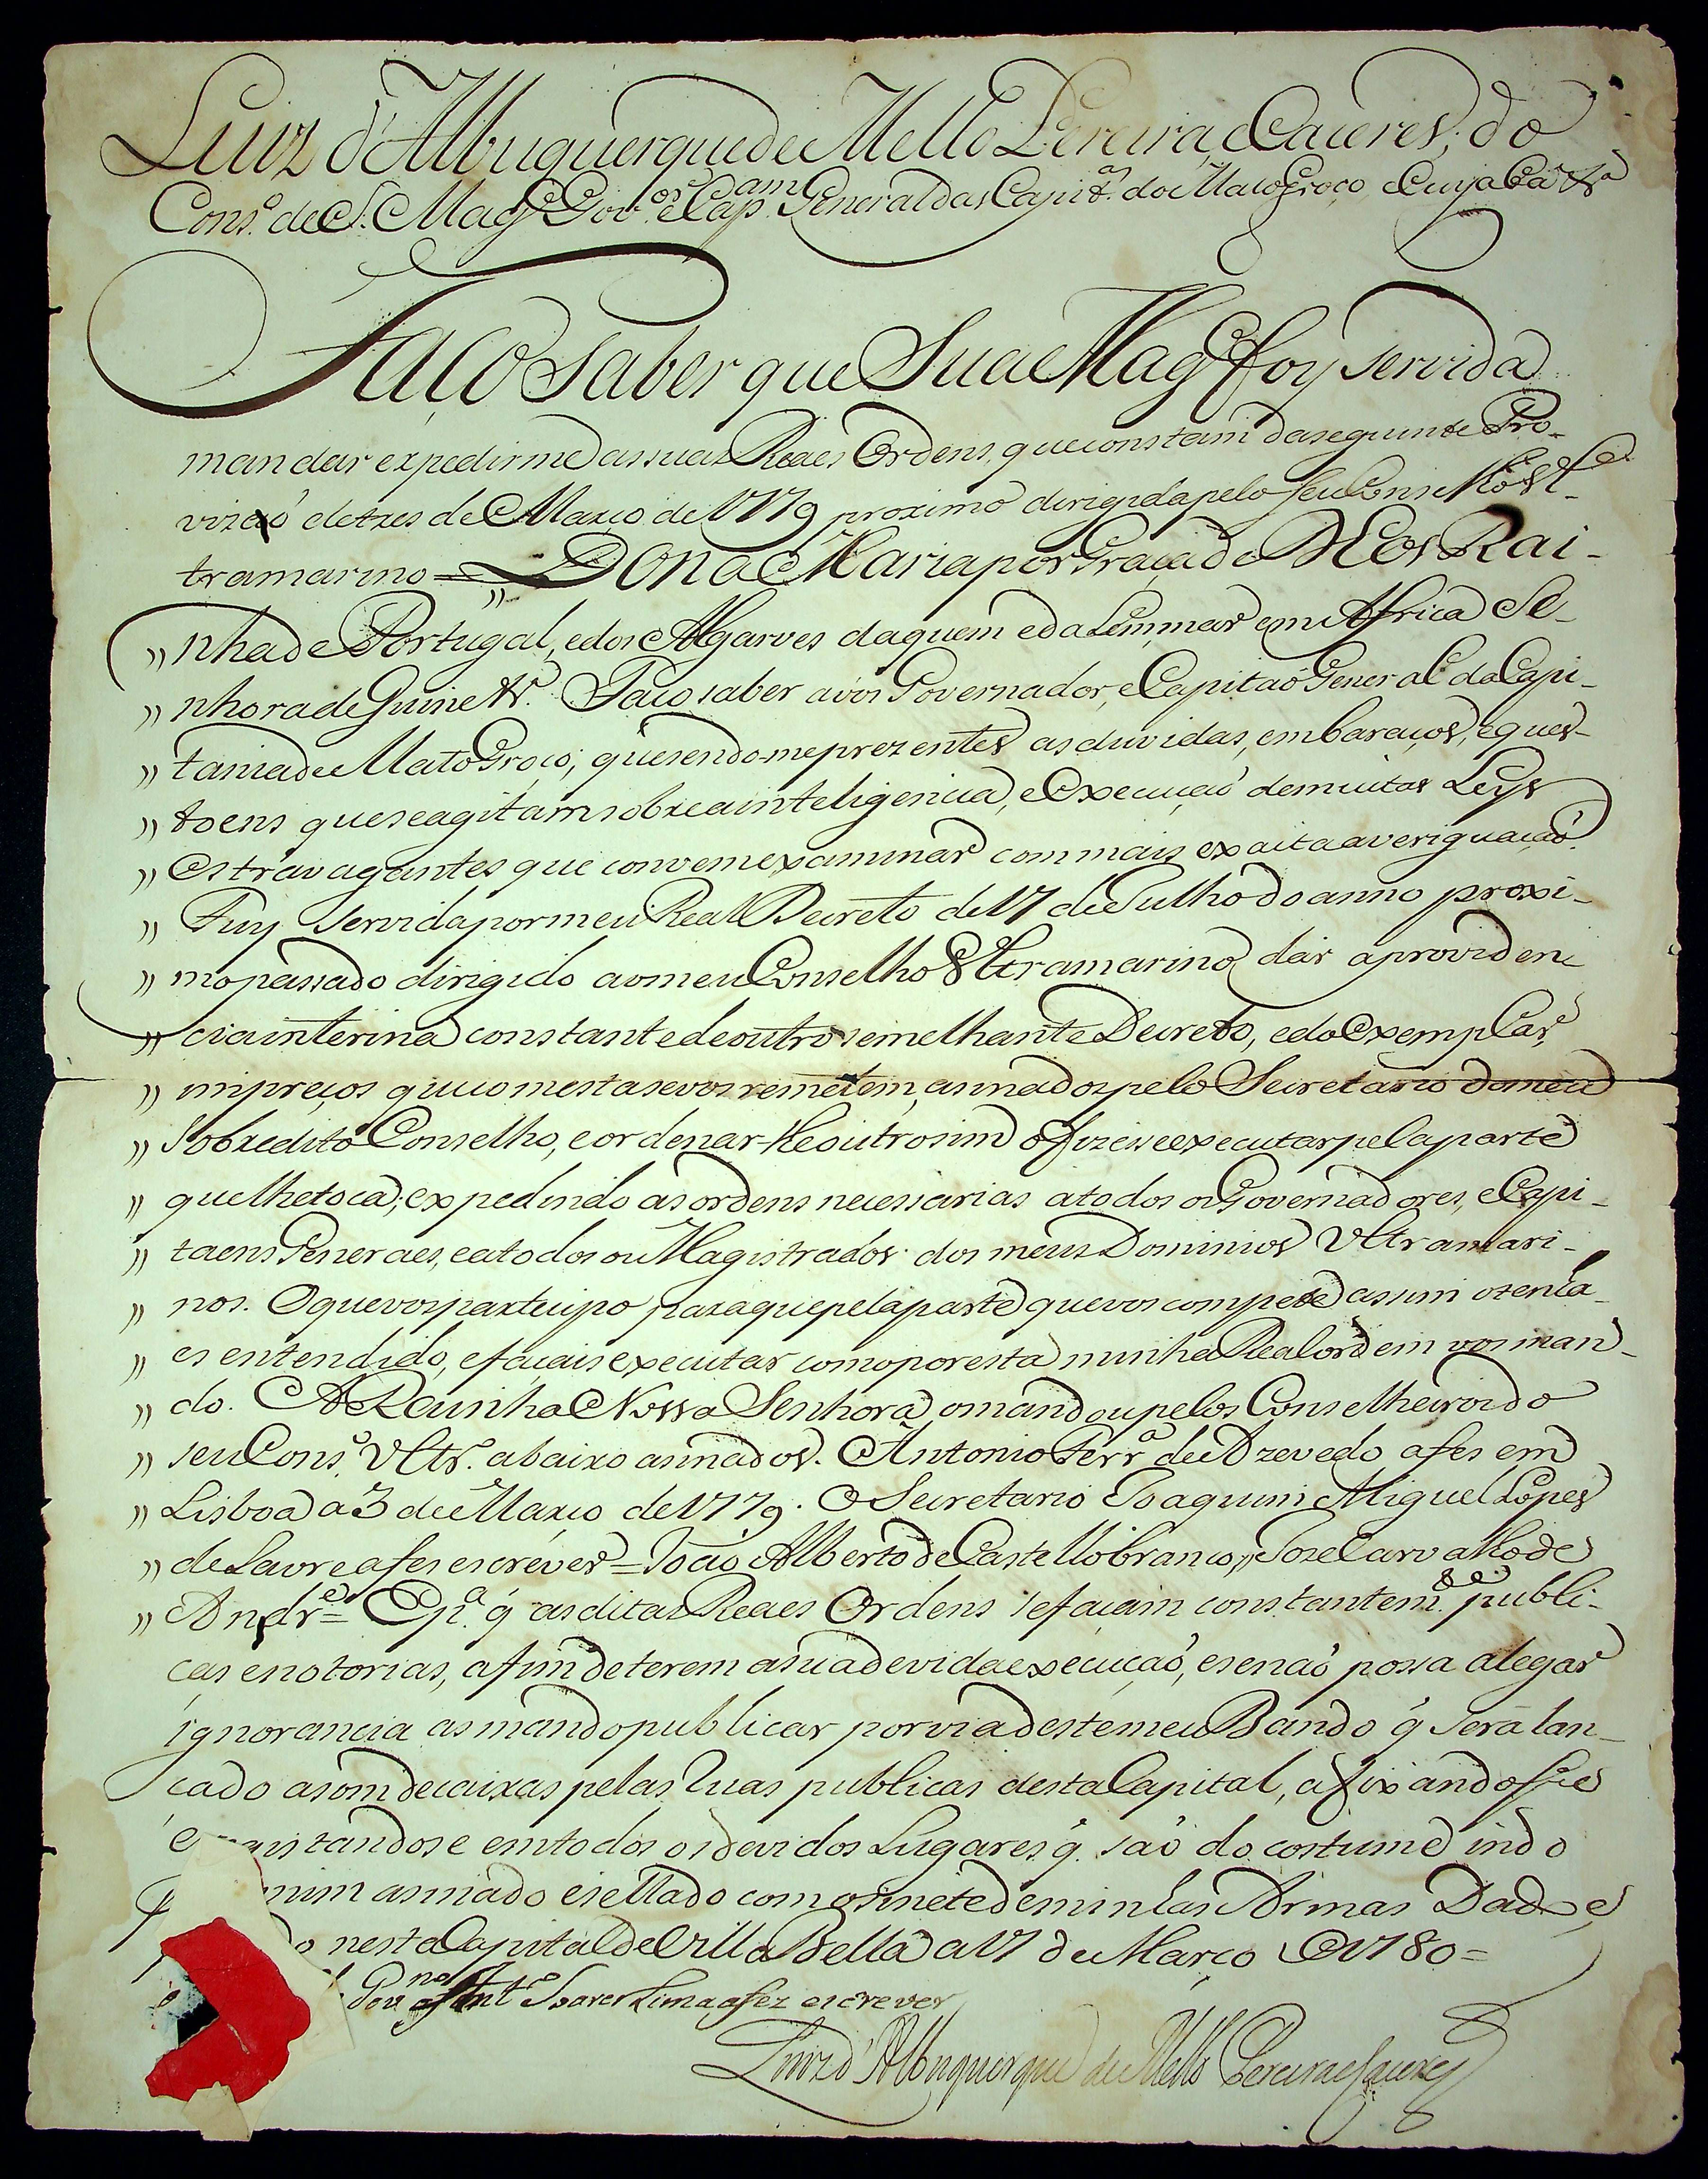 Luiz d'Albuquerque de Mello Pereira, e Caceres, do
Cons.º de S. Mag.e Gov.or e Cap.am General das Capit.as do Mato Groço, e Cuyabá &.a
Faço saber que Sua Mag.e foy servida
mandar expedirme as suas Reaes Ordens, que constam da seguinte Pro-
vizaõ de tres de Março de 1779 proximo dirigida pelo seu Conselho Ul-
tramarino = Dona Maria por Graça de Deos Rai-
" nha de Portugal, e dos Algarves daquem e da Lem, mar em Africa Se-
" nhora de Guine &.ª Faço saber a vós Governador, e Capitaõ General da Capi-
" tania de Mato Groço, que sendo-me prezentes as duvidas, embaraços, e ques-
" toens que se agitam sobre a inteligencia, e Execuçaõ de muitas Leys
" Estravagantes que convem examinar com mais exacta averiguaçaõ.
" Fuy servida por meu Real Decreto de 17 de Julho do anno proxi-
" mo passado dirigido ao meu Conselho Ultramarino dar a providen-
" cia interina constante de outro semelhante Decreto, e do Exemplar,
" impreços que com esta se vos remetem, asinados pelo Secretario do meu
" Sobredito Conselho, e ordenar-lhe outrosim o fizesse executar pela parte
" que lhe toca; expedindo as ordens necessarias a todos os Governadores, e Capi-
" taens Generaes, e a todos os Magistrados dos meus Dominios Ultramari-
" nos. O que vos participo para que pela parte que vos compete assim o tenha-
" es entendido, e façais executar como por esta minha Real ordem vos man-
" do. A Rainha Nossa Senhora o mandou pelos Conselheiros do
" seu Cons.º Ultr.º abaixo asinados. Antonio Ferr.ª de Azevedo a fes em
" Lisboa a 3 de Março de 1779. O Secretario Joaquim Miguel Lopes
" de Lavre a fes escréver = Joaõ Alberto de Castellobranco, " Joze Carvalho de
" Andr.e = E p.ª q̃ as ditas Reaes Ordens se façaim constantem.te publi-
cas e notorias, a fim de terem a sua devida execuçaõ, e se naõ possa alegar
ignorancia as mando publicar por via deste meu Bando q̃ será lan-
cado a som de caixas pelas Ruas publicas desta Capital, afixandosse
e gistandose em todos os devidos Lugares q̃ saõ do costume indo
mim asinado e sellado com o sinete de minhas Armas Dado, e
do nesta Capital de Villa Bella a 17 de Março @ 1780 =
Gov.no Ant.º Soares Lima a fez escrever
Luiz d'Albuquerque de Mello Pereira e Caceres